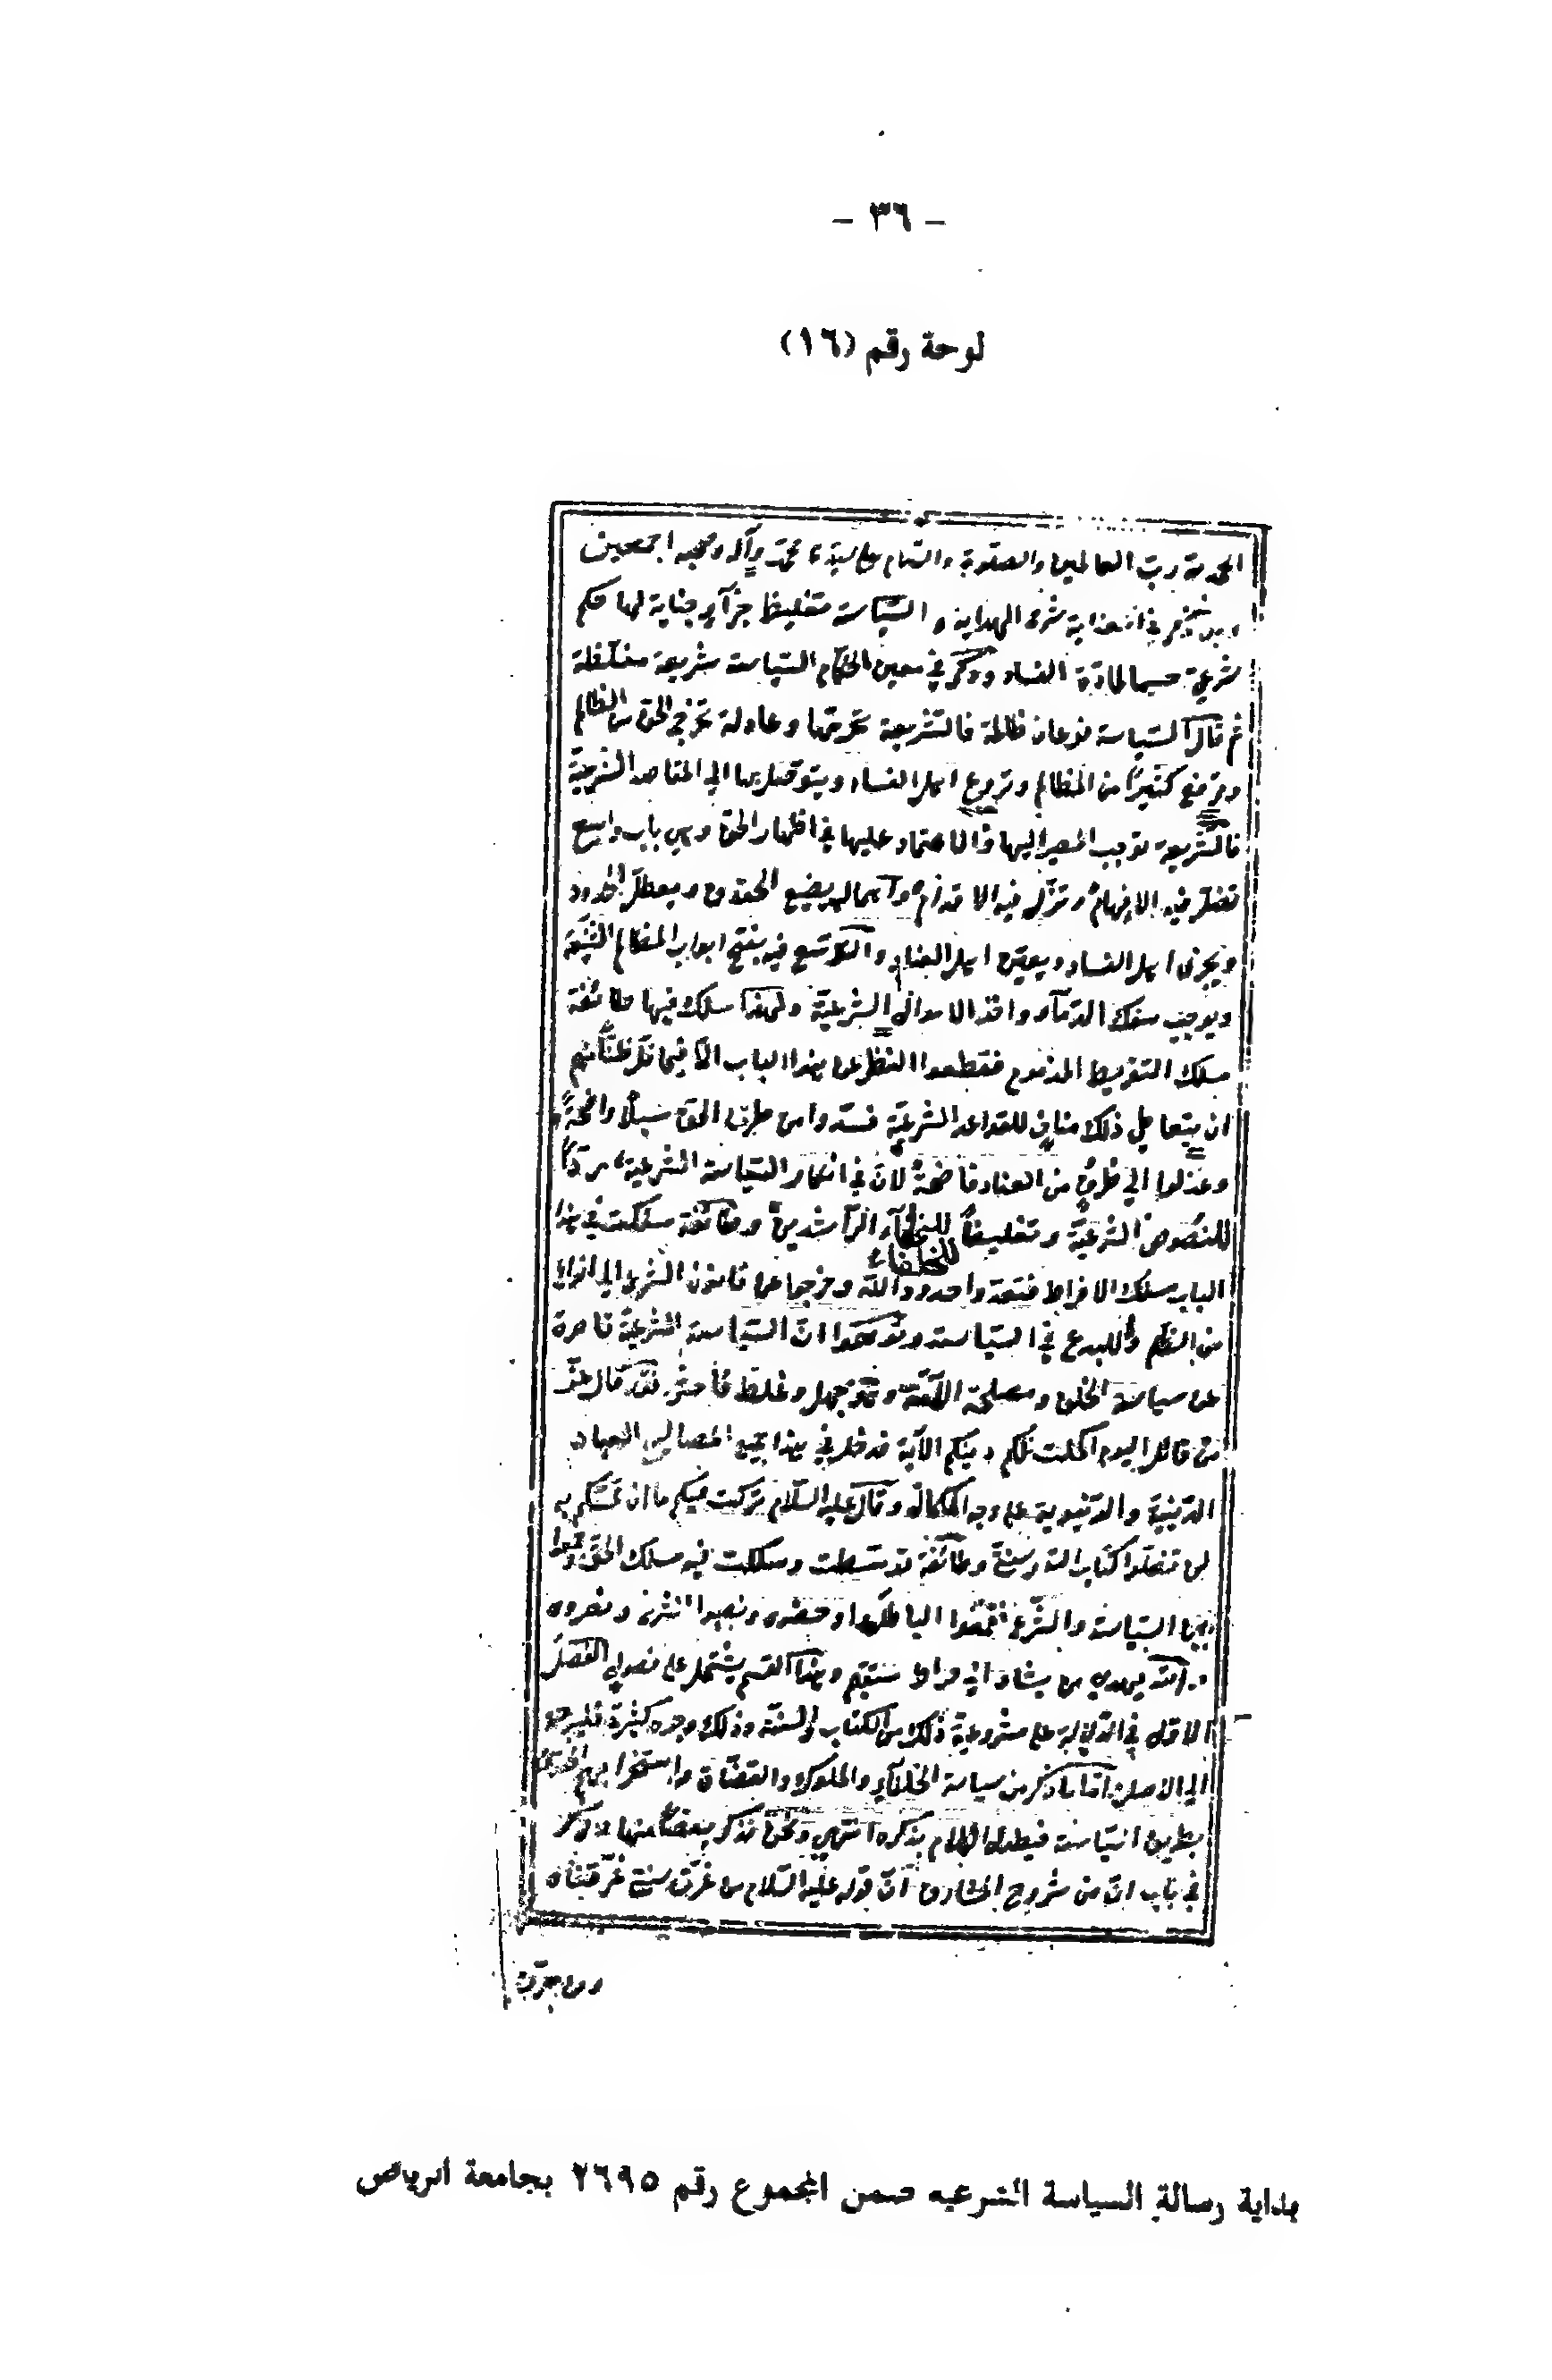 - ٣٦ -
لوحة رقم (١٦)
الحمد لله رب العالمين والصلوة والسلام على سيدنا محمد وآله وصحبه اجمعين
شرح الهداية والسياسة تغليظ جزآء جناية لها حكم
شرعي حسما لمادة الفساد وذكر في معين الحكام السياسة شريعة مغلظة
ثم قال السياسة نوعان ظالمة فالشريعة تحرمها وعادلة تخرج الحق من الظالم
وترفع كثيراً من المظالم وتروع اهل الفساد ويتوصل بها الى المقاصد الشرعية
فالشريعة توجب المصير اليها والاعتماد عليها في اظهار الحق وهي باب واسع
تضل فيه الافهام وتزل فيه الاقدام واهماله يضيع الحقوق ويعطل الحدود
ويجرئ اهل الفساد ويعين اهل العناد والتوسع فيه يفتح ابواب المظالم الشنيعة
ويوجب سفك الدمآء واخذ الاموال الشرعية ولهذا سلك فيها طائفة
مسلك التفريط المذموم فقطعوا النظر عن هذا الباب الا فيما قل ظنا منهم
ان تعاطي ذلك مناف للقواعد الشرعية فسدوا من طرق الحق سبلا واضحة
وعدلوا الى طرق من العناد فاضحة لان في انكار السياسة الشرعية ردا
للنصوص الشرعية وتغليطا للخلفآء الراشدين وطائفة سلكت في هذا
للخلفاء
الباب مسلك الافراط فتعدوا حدود الله وخرجوا عن قانون الشرع الى انواع
من الظلم والبدع في السياسة وتوهموا ان السياسة الشرعية قاصرة
عن سياسة الخلق ومصلحة الامة وهو جهل وغلط فاحش فقد قال عز
من قائل اليوم اكملت لكم دينكم الآية فدخل في هذا جميع مصالح العباد
الدينية والدنيوية على وجه الكمال وقال عليه السلام تركت فيكم ما ان تمسكتم به
لن تضلوا كتاب الله وسنتي وطائفة توسطت وسلكت فيه مسلك الحق وجمعوا
بين السياسة والشرع فقمعوا الباطل ودحضوه ونصبوا الشرع ونصروه
والله يهدي من يشاء الى صراط مستقيم وهذا القسم يشتمل على فصول الفصل
الاول في الدلالة على مشروعية ذلك من الكتاب والسنة وذلك وجوه كثيرة فليرجع
الى الاصل اما ما ذكر من سياسة الخلفآء والملوك والقضاة واستخراجهم الحقوق
بطريق السياسة فيطول الكلام بذكره انتهى ونحن نذكر بعضا منها
في باب ان من شروح المشارق ان قوله عليه السلام من غرق سنتي غرقناه
ومن حرق
بداية رسالة السياسة الشرعية ضمن المجموع رقم ٢٦٩٥ بجامعة الرياض